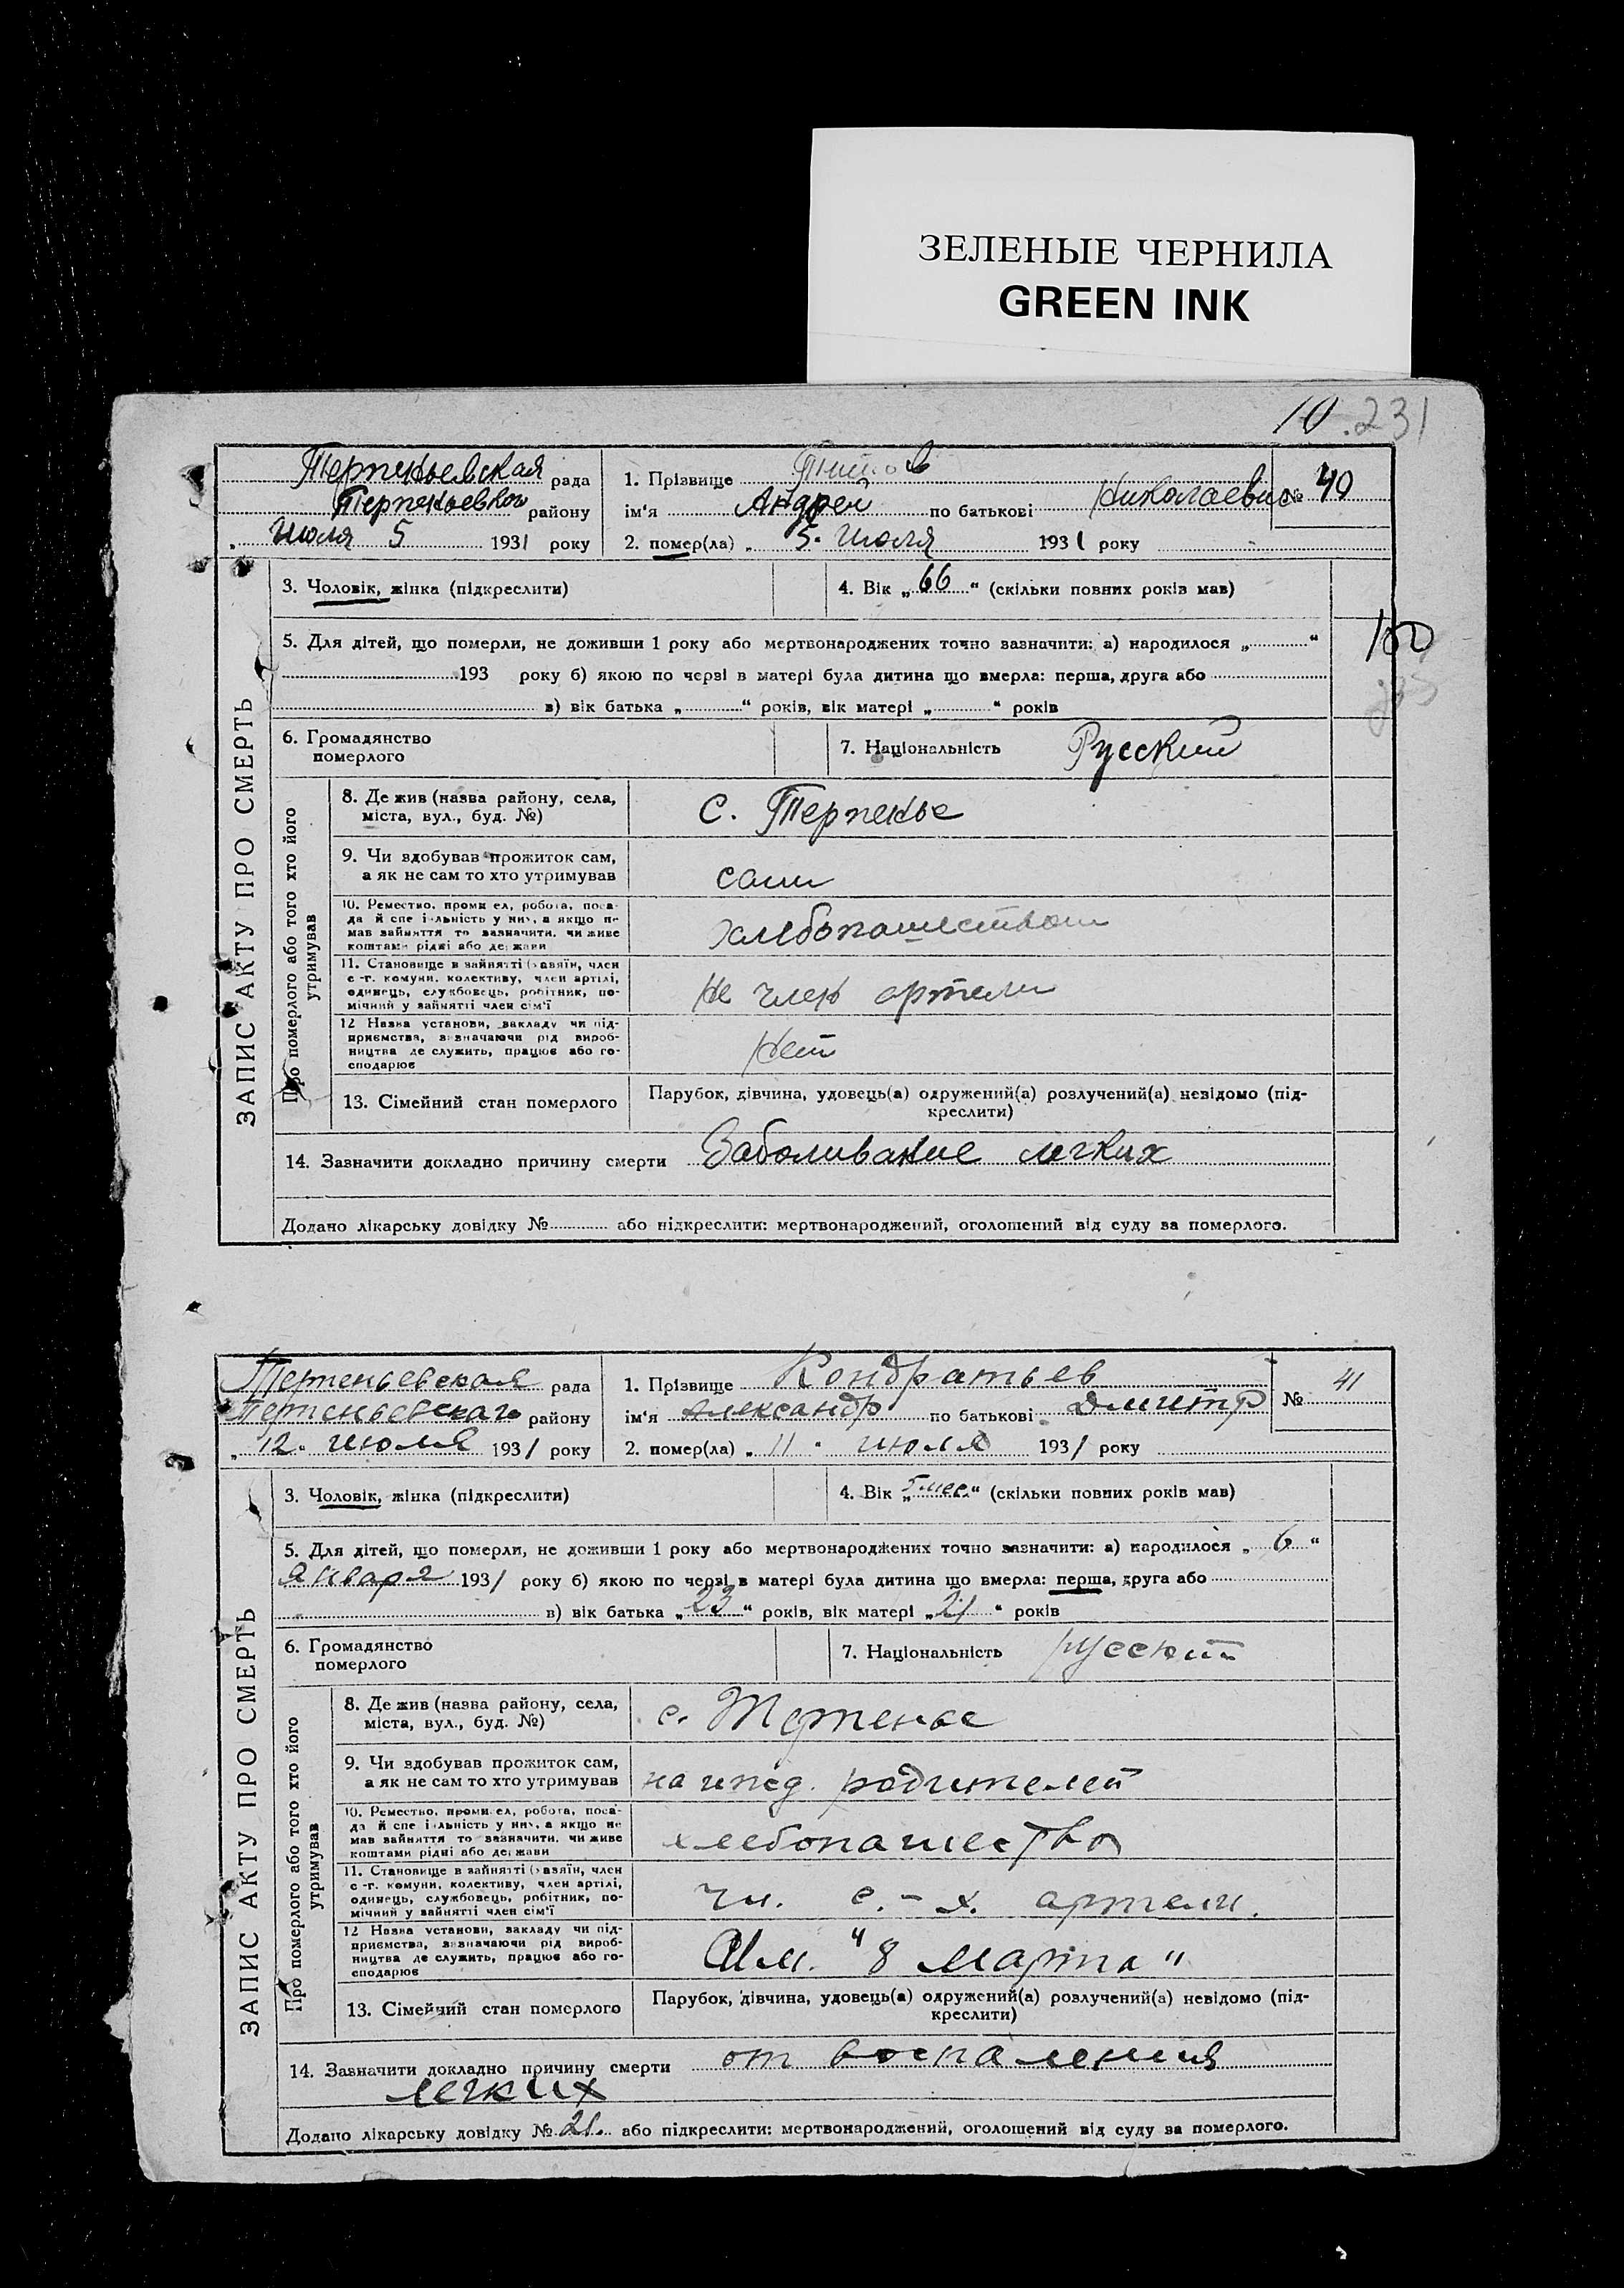 ЗЕЛЕНЫЕ ЧЕРНИЛА
GREEN INK
10 .231
Терпеньевская рада
Терпеньевског району
„ Июля 5 1931 року
1. Прізвище Титов
ім'я Андрей по батькові Николаевич
№ 40
2. помер(ла) „ 5. Июля 1931 року
ЗАПИС АКТУ ПРО СМЕРТЬ
3. Чоловік, жінка (підкреслити)
4. Вік „ 66 “ (скільки повних років мав)
5. Для дітей, що померли, не доживши 1 року або мертвонароджених точно зазначити: а) народилося „ “
193 року б) якою по черзі в матері була дитина що вмерла: перша, друга або
в) вік батька „ “ років, вік матері „ “ років
6. Громадянство
померлого
7. Національність Русский
Про померлого або того хто його
утримував
8. Де жив (назва району, села,
міста, вул., буд. №)
С. Терпенье
9. Чи здобував прожиток сам,
а як не сам то хто утримував
сам
10. Ремество, промисел, робота, поса-
да й спеціяльність у них, а якщо не
мав зайняття то зазначити, чи живе
коштами рідні або держави
хлебопашеством
11. Становище в зайнятті (хазяїн, член
с.-г. комуни, колективу, член артілі,
одинець, службовець, робітник, по-
мічний у зайнятті член сім'ї
Не член артели
12 Назва установи, закладу чи під-
приємства, зазначаючи рід вироб-
ництва де служить, працює або го-
сподарює
Нет
13. Сімейний стан померлого
Парубок, дівчина, удовець(а) одружений(а) розлучений(а) невідомо (під-
креслити)
14. Зазначити докладно причину смерти Заболивание легких
Додано лікарську довідку № або підкреслити: мертвонароджений, оголошений від суду за померлого.
Терпеньевская рада
Терпеньевскаго району
„ 12. июля 1931 року
1. Прізвище Кондратьев
ім'я Александр по батькові Дмитр
№ 41
2. помер(ла) „ 11. июля 1931 року
ЗАПИС АКТУ ПРО СМЕРТЬ
3. Чоловік, жінка (підкреслити)
4. Вік „ 5 мес. “ (скільки повних років мав)
5. Для дітей, що померли, не доживши 1 року або мертвонароджених точно зазначити: а) народилося „ 6 “
Января 1931 року б) якою по черзі в матері була дитина що вмерла: перша, друга або
в) вік батька „ 23 “ років, вік матері „ 21 “ років
6. Громадянство
померлого
7. Національність русский
Про померлого або того хто його
утримував
8. Де жив (назва району, села,
міста, вул., буд. №)
с. Терпенье
9. Чи здобував прожиток сам,
а як не сам то хто утримував
на ижд. родителей
10. Ремество, промисел, робота, поса-
да й спеціяльність у них, а якщо не
мав зайняття то зазначити, чи живе
коштами рідні або держави
хлебопашество
11. Становище в зайнятті (хазяїн, член
с.-г. комуни, колективу, член артілі,
одинець, службовець, робітник, по-
мічний у зайнятті член сім'ї
чл. с.-х. артели.
12 Назва установи, закладу чи під-
приємства, зазначаючи рід вироб-
ництва де служить, працює або го-
сподарює
Им. "8 Марта"
13. Сімейний стан померлого
Парубок, дівчина, удовець(а) одружений(а) розлучений(а) невідомо (під-
креслити)
14. Зазначити докладно причину смерти от воспаления
легких
Додано лікарську довідку № 21. або підкреслити: мертвонароджений, оголошений від суду за померлого.